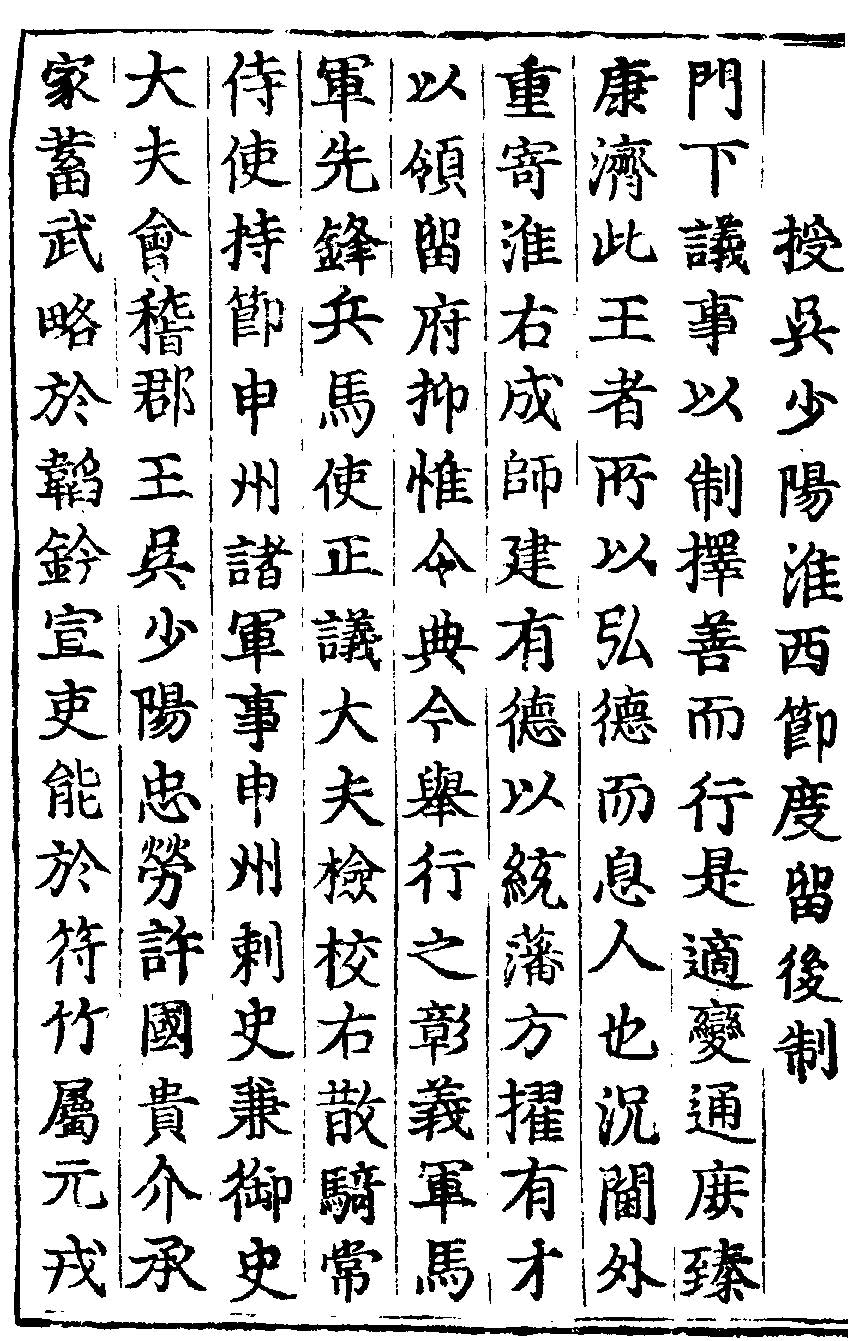 授吳少陽淮西節度留後制
門下議事以制擇善而行是適變通庶臻
康濟此王者所以弘德而息人也況閫外
重寄淮右成師建有德以統藩方擢有才
以領留府抑惟令典今舉行之彰義軍馬
軍先鋒兵馬使正議大夫檢校右散騎常
侍使持節申州諸軍事申州刺史兼御史
大夫會稽郡王吳少陽忠勞許國貴介承
家蓄武略於韜鈐宣吏能於符竹屬元戎